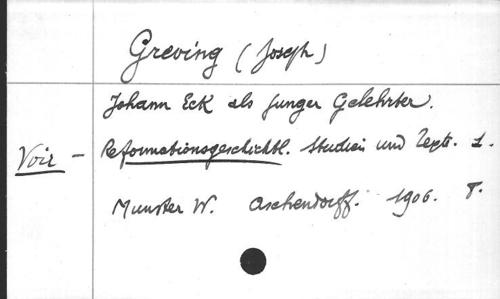 Greving (Joseph)
Johann Eck als junger Gelehrter.
Voir – Reformationsgeschichtl. Studien und Texte. 1.
Munster W. Aschendorff. 1906. 8.